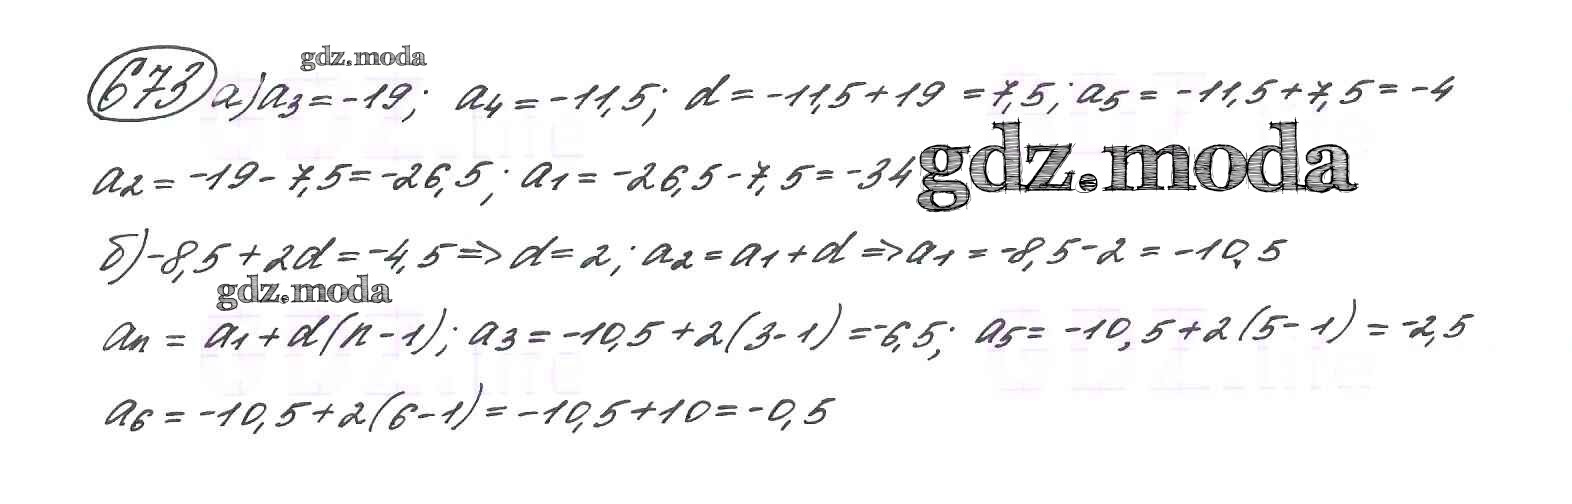 gdz.moda
673 а) a₃ = -19; a₄ = -11,5; d = -11,5 + 19 = 7,5; a₅ = -11,5 + 7,5 = -4
a₂ = -19 - 7,5 = -26,5; a₁ = -26,5 - 7,5 = -34 gdz.moda
б) -8,5 + 2d = -4,5 => d = 2; a₂ = a₁ + d => a₁ = -8,5 - 2 = -10,5
gdz.moda
aₙ = a₁ + d(n-1); a₃ = -10,5 + 2(3-1) = -6,5; a₅ = -10,5 + 2(5-1) = -2,5
a₆ = -10,5 + 2(6-1) = -10,5 + 10 = -0,5